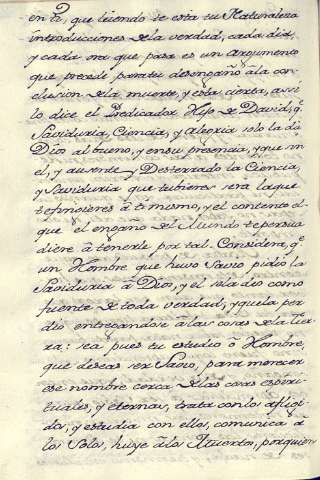 en ti, que siendo se esta su Naturaleza
introducciones de la verdad, cada dia,
y cada ora que pasa es un argumento
que precede para tu desengaño â la con-
clusion de la muerte, y esta cierta, assi
lo dice el Predicador Hijo de David, q̃
Saviduria, Ciencia, y Alegria solo la dâ
Dios al bueno, y en su presencia, y que sin
el, y ausente y Desterrado la Ciencia,
y Saviduria que tubieres sera la que
te finxieres â ti mismo, y el contento el
que el engaño del Mundo te persua
diere â tenerle por tal. Considera, q̃.
un Hombre que huvo Savio pidiô la
Saviduria â Dios, y el sela dio como
fuente de toda verdad, y que la per
dio entregandose â las cosas de la tier
ra: sea pues tu estudio ô Hombre,
que deseas ser Savio, para merecer
ese nombre cerca de las cosas espiri-
tuales, y eternas, trata con los afligi-
dos, y estudia con ellos, comunica â
los Solos, huye â los Muertos, por quien